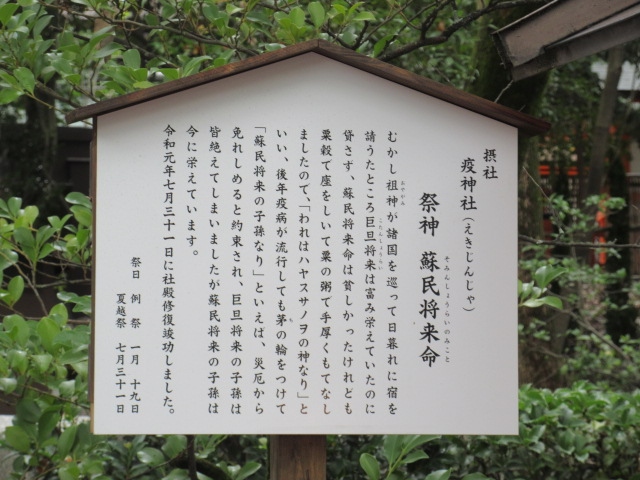 摂社
疫神社(えきじんじゃ)
祭神 蘇民将来命
そみんしょうらいのみこと
むかし祖神が諸国を巡って日暮れに宿を
請うたところ巨旦将来は富み栄えていたのに
こたんしょうらい
貸さず、蘇民将来命は貧しかったけれども
粟穀で座をしいて粟の粥で手厚くもてなし
ましたので、「われはハヤスサノヲの神なり」と
いい、後年疫病が流行しても茅の輪をつけて
「蘇民将来の子孫なり」といえば、災厄から
免れしめると約束され、巨旦将来の子孫は
皆絶えてしまいましたが蘇民将来の子孫は
今に栄えています。
令和元年七月三十一日に社殿修復竣功しました。
祭日 例祭 一月 十九日
夏越祭 七月三十一日